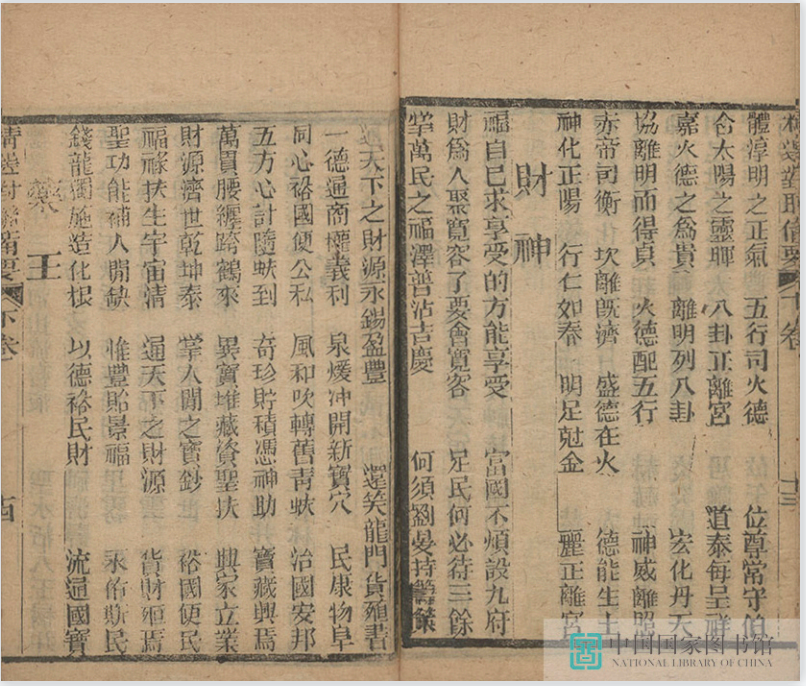 體淳明之正氣 五行司火德 位尊常守
合太陽之靈 八卦正離宮 道泰每呈祥
嘉火德之為貴 離明列八卦 宏化丹天
協離明而得貞 火德配五行 神威離照
赤帝司衡 坎離既濟 盛德在火 德能生土
神化正陽 行仁如春 明足尅金 麗正離宮
財神
福自己求享受的方能享受 富國不煩設九府
財為人聚寬容了要會寬容 足民何必待三餘
掌萬民之福澤普沾吉慶 何須劉晏持籌策
通天下之財源永錫盈豐 還笑龍門貨殖書
一德通商權義利 泉煖沖開新寶穴 民康物阜
同心裕國便公私 風和吹轉舊青蚨 治國安邦
五方心計隨蚨到 奇珍貯積憑神助 寶藏興焉
萬貫腰纏跨鶴來 異寶堆藏資聖扶 興家立業
財源濟世乾坤泰 掌人間之寶鈔 裕國便民
福祿扶生宇宙清 通天下之財源 貨財殖焉
聖功能補人間缺 惟豐貽景福 永佑斯民
錢龍獨施造化根 以德裕民財 流通國寶
王
下卷
中国国家图书馆
NATIONAL LIBRARY OF CHINA